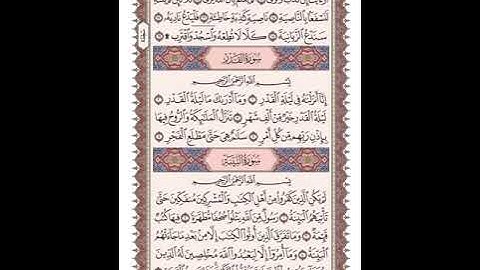 لَنَسْفَعًۢا بِٱلنَّاصِيَةِ ۝ نَاصِيَةٍ كَٰذِبَةٍ خَاطِئَةٍ ۝ فَلْيَدْعُ نَادِيَهُۥ ۝
سَنَدْعُ ٱلزَّبَانِيَةَ ۝ كَلَّا لَا تُطِعْهُ وَٱسْجُدْ وَٱقْتَرِب ۩ ۝
سُورَةُ القَدْرِ
بِسْمِ ٱللَّهِ ٱلرَّحْمَٰنِ ٱلرَّحِيمِ
إِنَّآ أَنزَلْنَٰهُ فِى لَيْلَةِ ٱلْقَدْرِ ۝ وَمَآ أَدْرَىٰكَ مَا لَيْلَةُ ٱلْقَدْرِ ۝
لَيْلَةُ ٱلْقَدْرِ خَيْرٌ مِّنْ أَلْفِ شَهْرٍ ۝ تَنَزَّلُ ٱلْمَلَٰٓئِكَةُ وَٱلرُّوحُ فِيهَا
بِإِذْنِ رَبِّهِم مِّن كُلِّ أَمْرٍ ۝ سَلَٰمٌ هِىَ حَتَّىٰ مَطْلَعِ ٱلْفَجْرِ ۝
سُورَةُ البَيِّنَةِ
بِسْمِ ٱللَّهِ ٱلرَّحْمَٰنِ ٱلرَّحِيمِ
لَمْ يَكُنِ ٱلَّذِينَ كَفَرُوا۟ مِنْ أَهْلِ ٱلْكِتَٰبِ وَٱلْمُشْرِكِينَ مُنفَكِّينَ حَتَّىٰ
تَأْتِيَهُمُ ٱلْبَيِّنَةُ ۝ رَسُولٌ مِّنَ ٱللَّهِ يَتْلُوا۟ صُحُفًا مُّطَهَّرَةً ۝ فِيهَا كُتُبٌ
قَيِّمَةٌ ۝ وَمَا تَفَرَّقَ ٱلَّذِينَ أُوتُوا۟ ٱلْكِتَٰبَ إِلَّا مِنۢ بَعْدِ مَا جَآءَتْهُمُ
ٱلْبَيِّنَةُ ۝ وَمَآ أُمِرُوٓا۟ إِلَّا لِيَعْبُدُوا۟ ٱللَّهَ مُخْلِصِينَ لَهُ ٱلدِّينَ